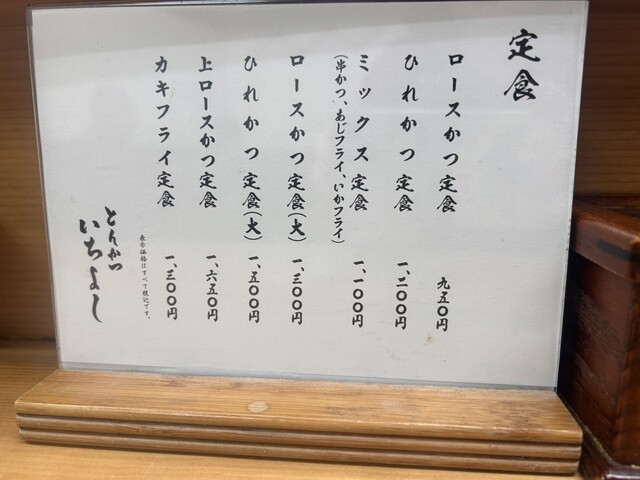 定食
ロースかつ定食 九五〇円
ひれかつ定食 一、二〇〇円
ミックス定食 一、一〇〇円
(串かつ、あじフライ、いかフライ)
ロースかつ定食(大) 一、三〇〇円
ひれかつ定食(大) 一、五〇〇円
上ロースかつ定食 一、六五〇円
カキフライ定食 一、三〇〇円
表示価格はすべて税込です。
とんかつ
いちよし